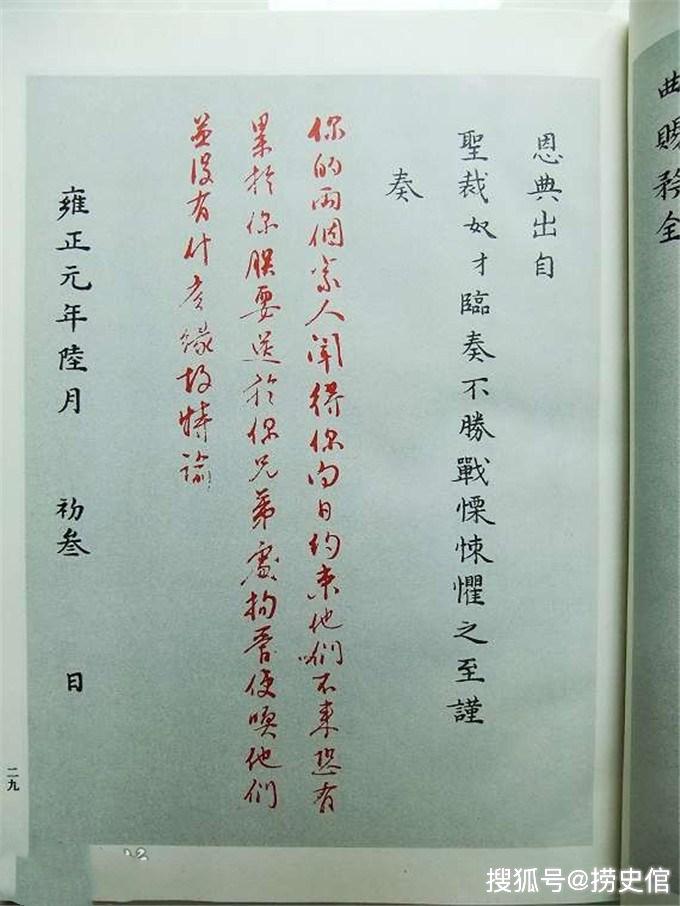 曲賜矜全
恩典出自
聖裁奴才臨奏不勝戰慄悚懼之至謹
奏
你的兩個家人聞得你向日約束他們不來恐有
累於你朕要送於你兄弟處拘便喚他們
並没有什麽緣故特諭
雍正元年陸月 初叁 日
二九
搜狐号@捞史倌